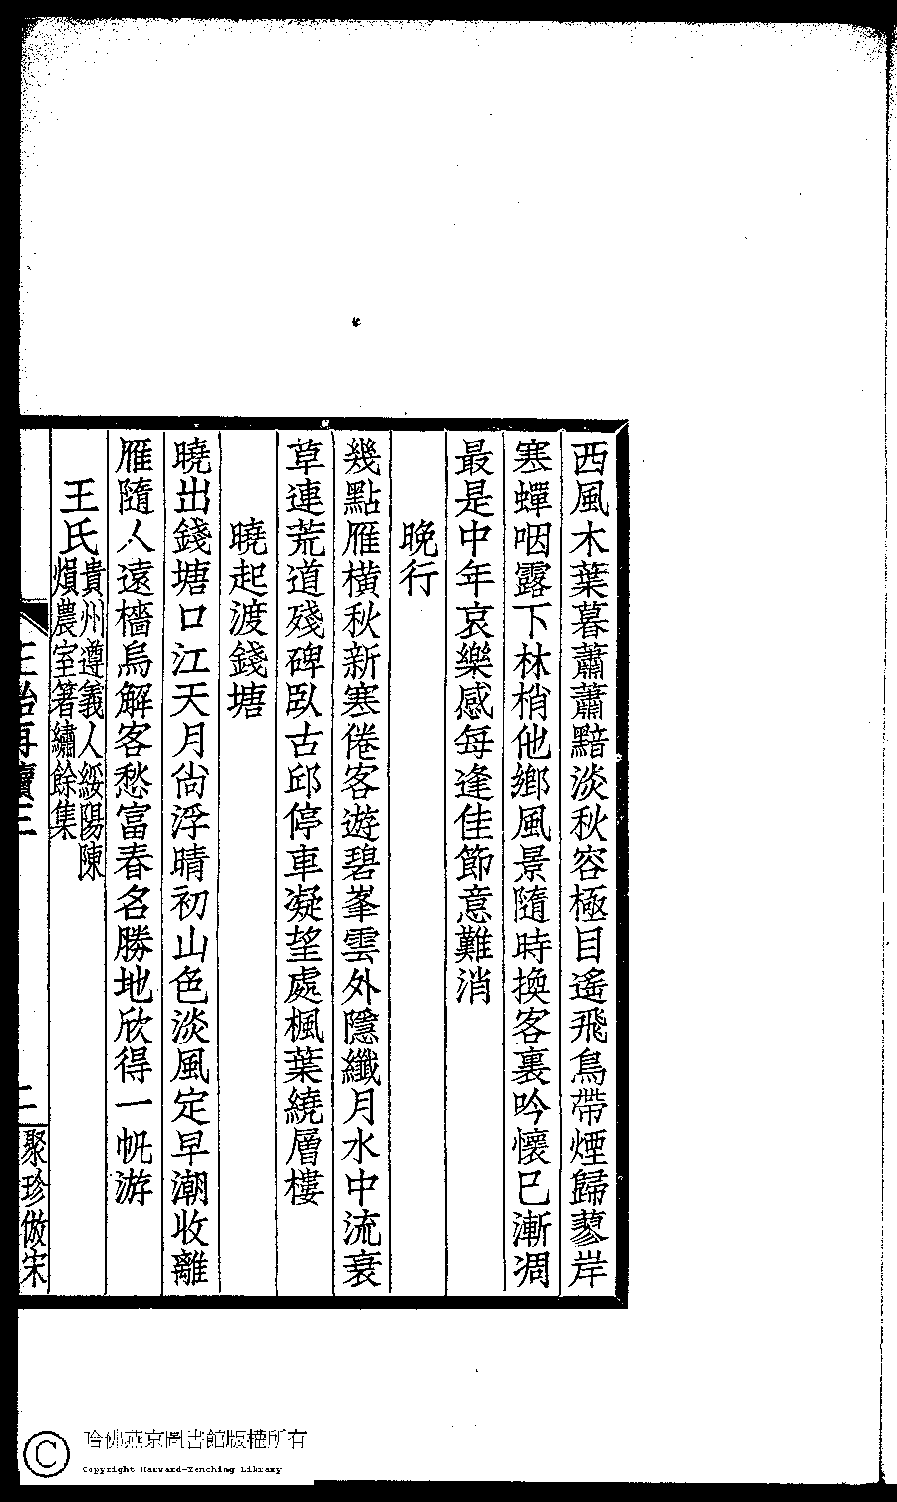 西風木葉暮蕭蕭黯淡秋容極目遙飛鳥帶煙歸蓼岸
寒蟬咽露下林梢他鄉風景隨時換客裏吟懷已漸凋
最是中年哀樂感每逢佳節意難消
晚行
幾點雁橫秋新寒倦客遊碧峯雲外隱纖月水中流衰
草連荒道殘碑臥古邱停車凝望處楓葉繞層樓
曉起渡錢塘
曉出錢塘口江天月尙浮晴初山色淡風定早潮收離
雁隨人遠檣烏解客愁富春名勝地欣得一帆游
王氏
貴州遵義人綏陽陳
熉農室箸繡餘集
三
再續三
二
聚珍倣宋
哈佛燕京圖書館版權所有
Copyright Harvard-Yenching Library